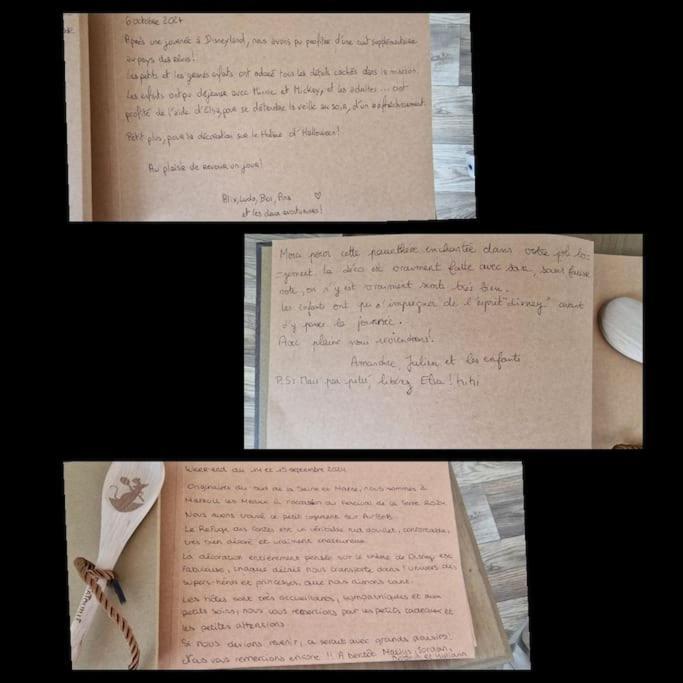 6 octobre 2024
Après une journée à Disneyland, nous avons pu profiter d'une nuit supplémentaire
au pays des rêves!
Les petits et les grands enfants ont adoré tous les détails cachés dans la maison.
Les enfants ont pu déjeuner avec Minnie et Mickey, et les adultes... ont
profité de l'aide d'Elsa, pour se détendre la veille au soir, d'un rafraîchissement.
Petit plus, pour la décoration sur le thème d'Halloween!
Au plaisir de revenir un jour!
Ludo,
et les deux !
Merci pour cette parenthèse enchantée dans votre joli lo-
-gement. la déco est vraiment faite avec soin, sans fausse
note, on s'y est vraiment sentis très bien.
Les enfants ont pu s'imprégner de l'esprit "disney" avant
d'y passer la journée.
Avec plaisir nous reviendrons!
Amandine, Julien et les enfants
P.S: Mais par pitié, libérez Elsa! hihi
Week-end du 14 et 15 septembre 2024
Originaires du sud de la Seine et Marne, nous sommes à
Mareuil les Meaux à l'occasion du Festival de la Terre 2024
Nous avons trouvé ce petit logement sur AirBnB.
Le Refuge des Contes est un véritable nid douillet, confortable,
très bien décoré et vraiment chaleureux.
La décoration entièrement pensée sur le thème de Disney est
fabuleuse, chaque détail nous transporte dans l'univers des
supers-héros et princesses, que nous aimons tant.
Les hôtes sont très accueillants, sympathiques et aux
petits soins, nous vous remercions pour les petits cadeaux et
les petites attentions.
Si nous devions revenir, ce serait avec grands plaisirs!
Nous vous remercions encore !! A bientôt Maëlys, Jordan,
et